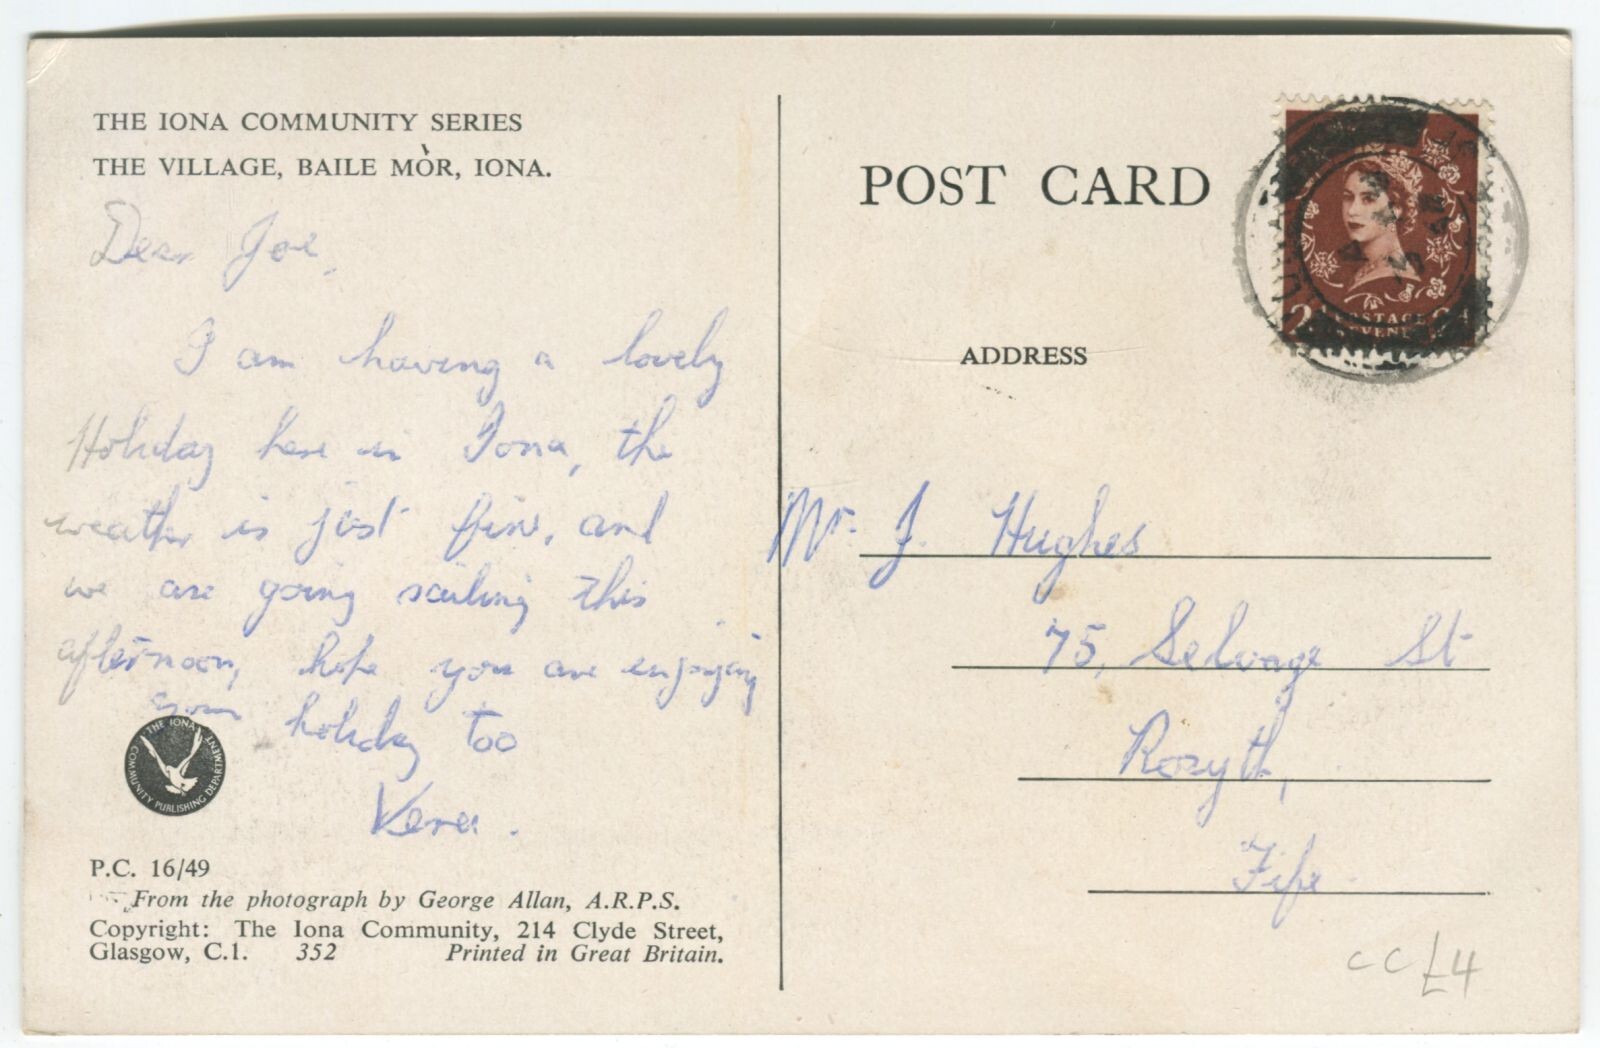 THE IONA COMMUNITY SERIES
THE VILLAGE, BAILE MÒR, IONA.
Dear Joe,
I am having a lovely
Holiday here in Iona, the
weather is just fine, and
we are going sailing this
afternoon, hope you are enjoying
your holiday too
Vera.
THE IONA
COMMUNITY PUBLISHING DEPARTMENT
P.C. 16/49
From the photograph by George Allan, A.R.P.S.
Copyright: The Iona Community, 214 Clyde Street,
Glasgow, C.1. 352 Printed in Great Britain.
POST CARD
ADDRESS
POSTAGE
REVENUE
Mr. J. Hughes
75, Selvage St
Rosyth,
Fife.
CC £4